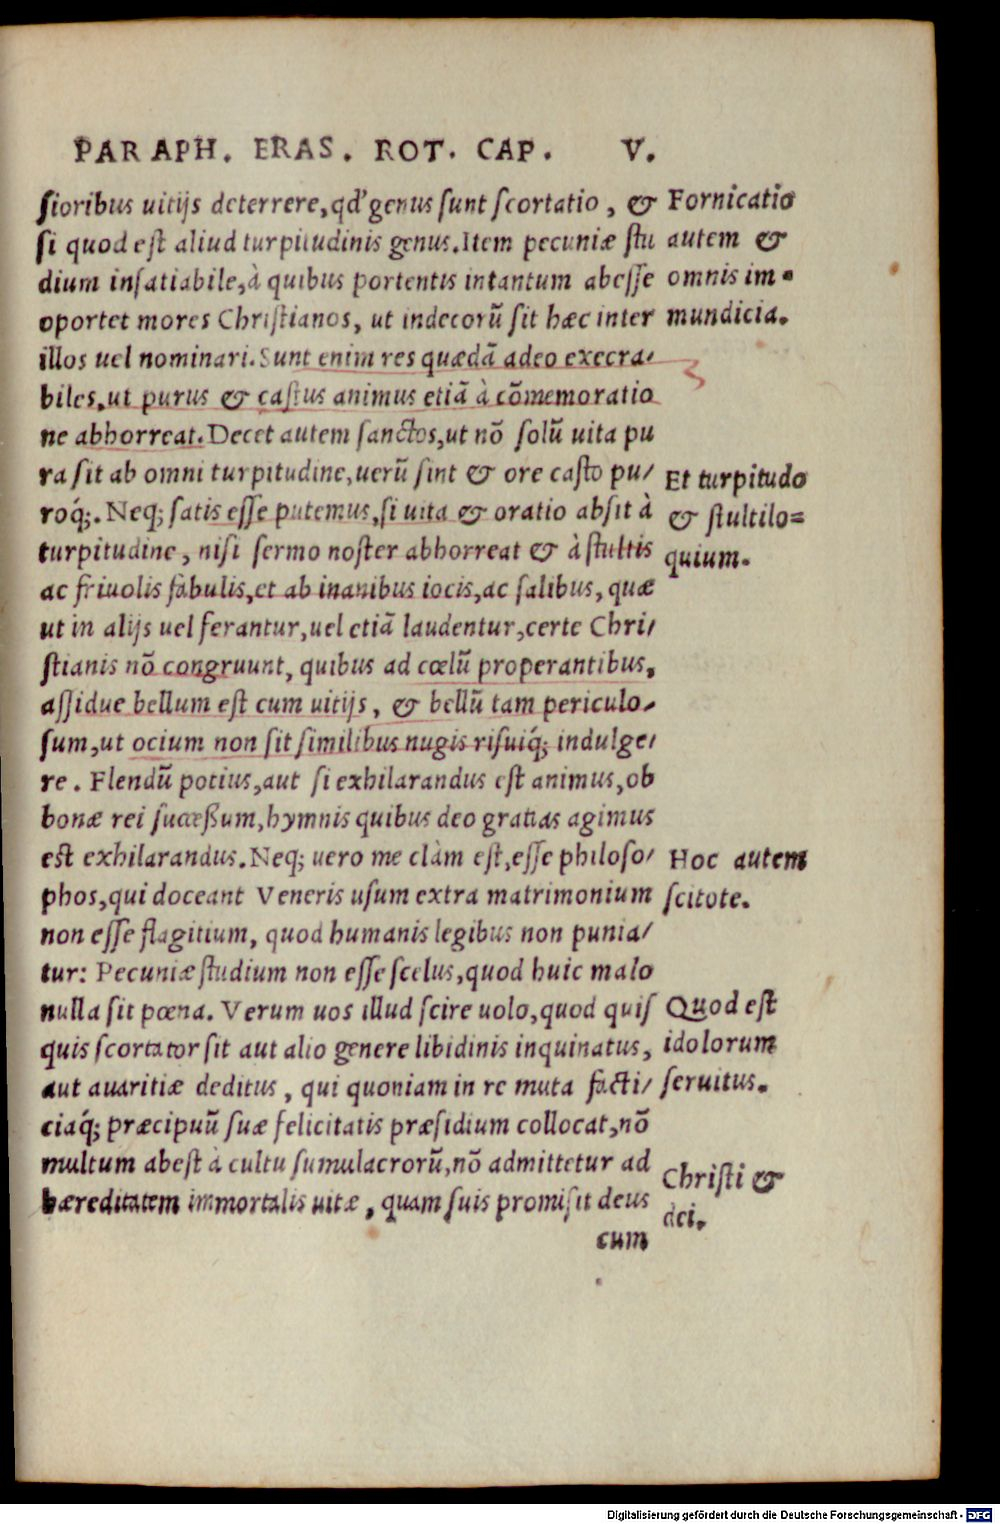 PARAPH. ERAS. ROT. CAP. V.
sioribus uitijs deterrere, qđ genus sunt scortatio, &
si quod est aliud turpitudinis genus. Item pecuniæ stu
dium insatiabile, à quibus portentis intantum abesse
oportet mores Christianos, ut indecorũ sit hæc inter
illos uel nominari. Sunt enim res quædã adeo execra-
biles, ut purus & castus animus etiã à cõmemoratio
ne abhorreat. Decet autem sanctos, ut nõ solũ uita pu
ra sit ab omni turpitudine, uerũ sint & ore casto pu/
roq́;. Neq; satis esse putemus, si uita & oratio absit à
turpitudine, nisi sermo noster abhorreat & à stultis
ac friuolis fabulis, et ab inanibus iocis, ac salibus, quæ
ut in alijs uel ferantur, uel etiã laudentur, certe Chri/
stianis nõ congruunt, quibus ad cœlũ properantibus,
assidue bellum est cum uitijs, & bellũ tam periculo-
sum, ut ocium non sit similibus nugis risuiq́; indulge/
re. Flendũ potius, aut si exhilarandus est animus, ob
bonæ rei sucæßum, hymnis quibus deo gratias agimus
est exhilarandus. Neq; uero me clàm est, esse philoso/
phos, qui doceant Veneris usum extra matrimonium
non esse flagitium, quod humanis legibus non punia/
tur: Pecuniæ studium non esse scelus, quod huic malo
nulla sit pœna. Verum uos illud scire uolo, quod quis
quis scortator sit aut alio genere libidinis inquinatus,
aut auaritiæ deditus, qui quoniam in re muta facti/
ciaq́; præcipuũ suæ felicitatis præsidium collocat, nõ
multum abest à cultu sumulacrorũ, nõ admittetur ad
hæreditatem immortalis uitæ, quam suis promisit deus
cum
Fornicatio
autem &
omnis im-
mundicia.
Et turpitudo
& stultilo=
quium.
Hoc autem
scitote.
Quod est
idolorum
seruitus.
Christi &
dei.
Digitalisierung gefördert durch die Deutsche Forschungsgemeinschaft - DFG